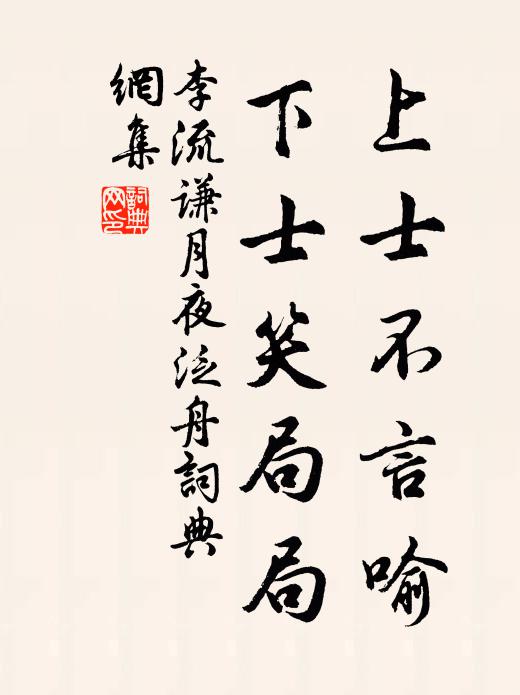 上士不言喻
下士笑局局
李流谦月夜泛舟詞典
網集
詞典網印